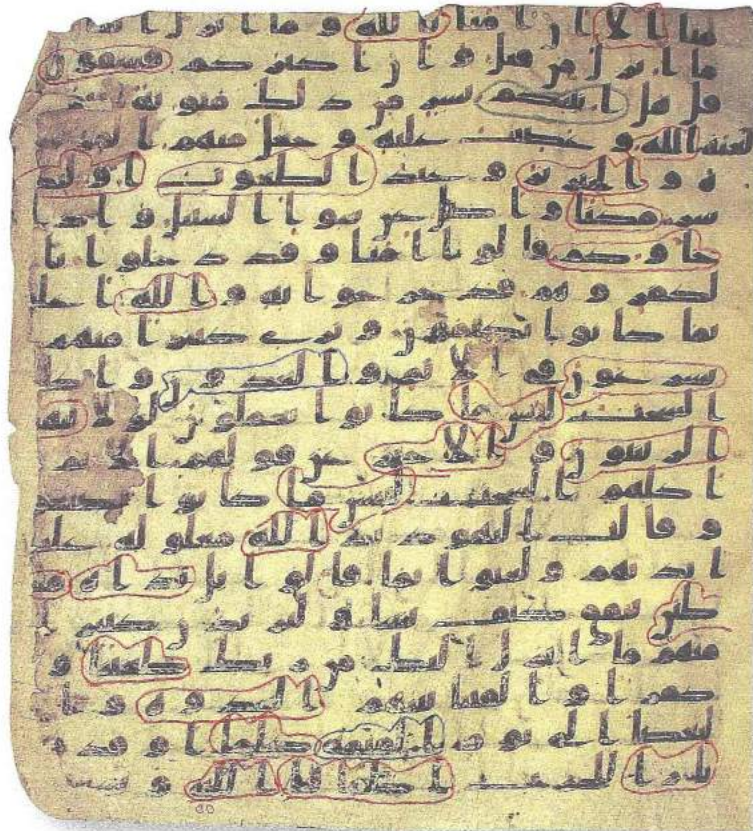 منا الا ان امنا بالله وما انزل الينا و
ما انزل من قبل و ان اكثركم فسقون
قل هل انبئكم بشر من ذلك مثوبة عند
لعنه الله و غضب عليه و جعل منهم القرد
ة و الخنزير و عبد الطغوت اولئك
شر مكنا و اضل عن سوا السبيل و اذا
جاوكم قالوا امنا و قد دخلوا با
لكفر و هم قد خرجوا به و الله اعلم
بما كانوا يكتمون و ترى كثيرا منهم
يسرعون في الاثم و العدون و اكلهم
السحت لبئس ما كانوا يعملون لولا ينهيهم
الربنيون و الاحبر عن قولهم الاثم و
اكلهم السحت لبئس ما كانوا يصنعون
و قالت اليهود يد الله مغلولة غلت
ايديهم و لعنوا بما قالوا بل يداه مبسو
طتن ينفق كيف يشا و ليزيدن كثيرا
منهم ما انزل اليك من ربك طغينا و
كفرا و القينا بينهم العدوة و ا
لبغضا الى يوم القيمة كلما اوقدوا
نارا للحرب اطفاها الله و يسعون